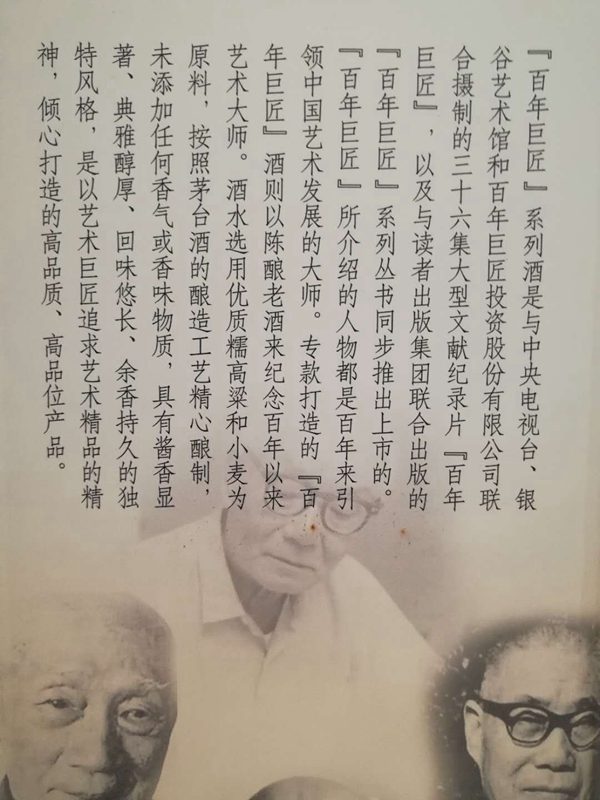 『百年巨匠』系列酒是与中央电视台、银
谷艺术馆和百年巨匠投资股份有限公司联
合摄制的三十六集大型文献纪录片『百年
巨匠』，以及与读者出版集团联合出版的
『百年巨匠』系列丛书同步推出上市的。
『百年巨匠』所介绍的人物都是百年来引
领中国艺术发展的大师。专款打造的『百
年巨匠』酒则以陈酿老酒来纪念百年以来
艺术大师。酒水选用优质糯高粱和小麦为
原料，按照茅台酒的酿造工艺精心酿制，
未添加任何香气或香味物质，具有酱香显
著、典雅醇厚、回味悠长、余香持久的独
特风格，是以艺术巨匠追求艺术精品的精
神，倾心打造的高品质、高品位产品。